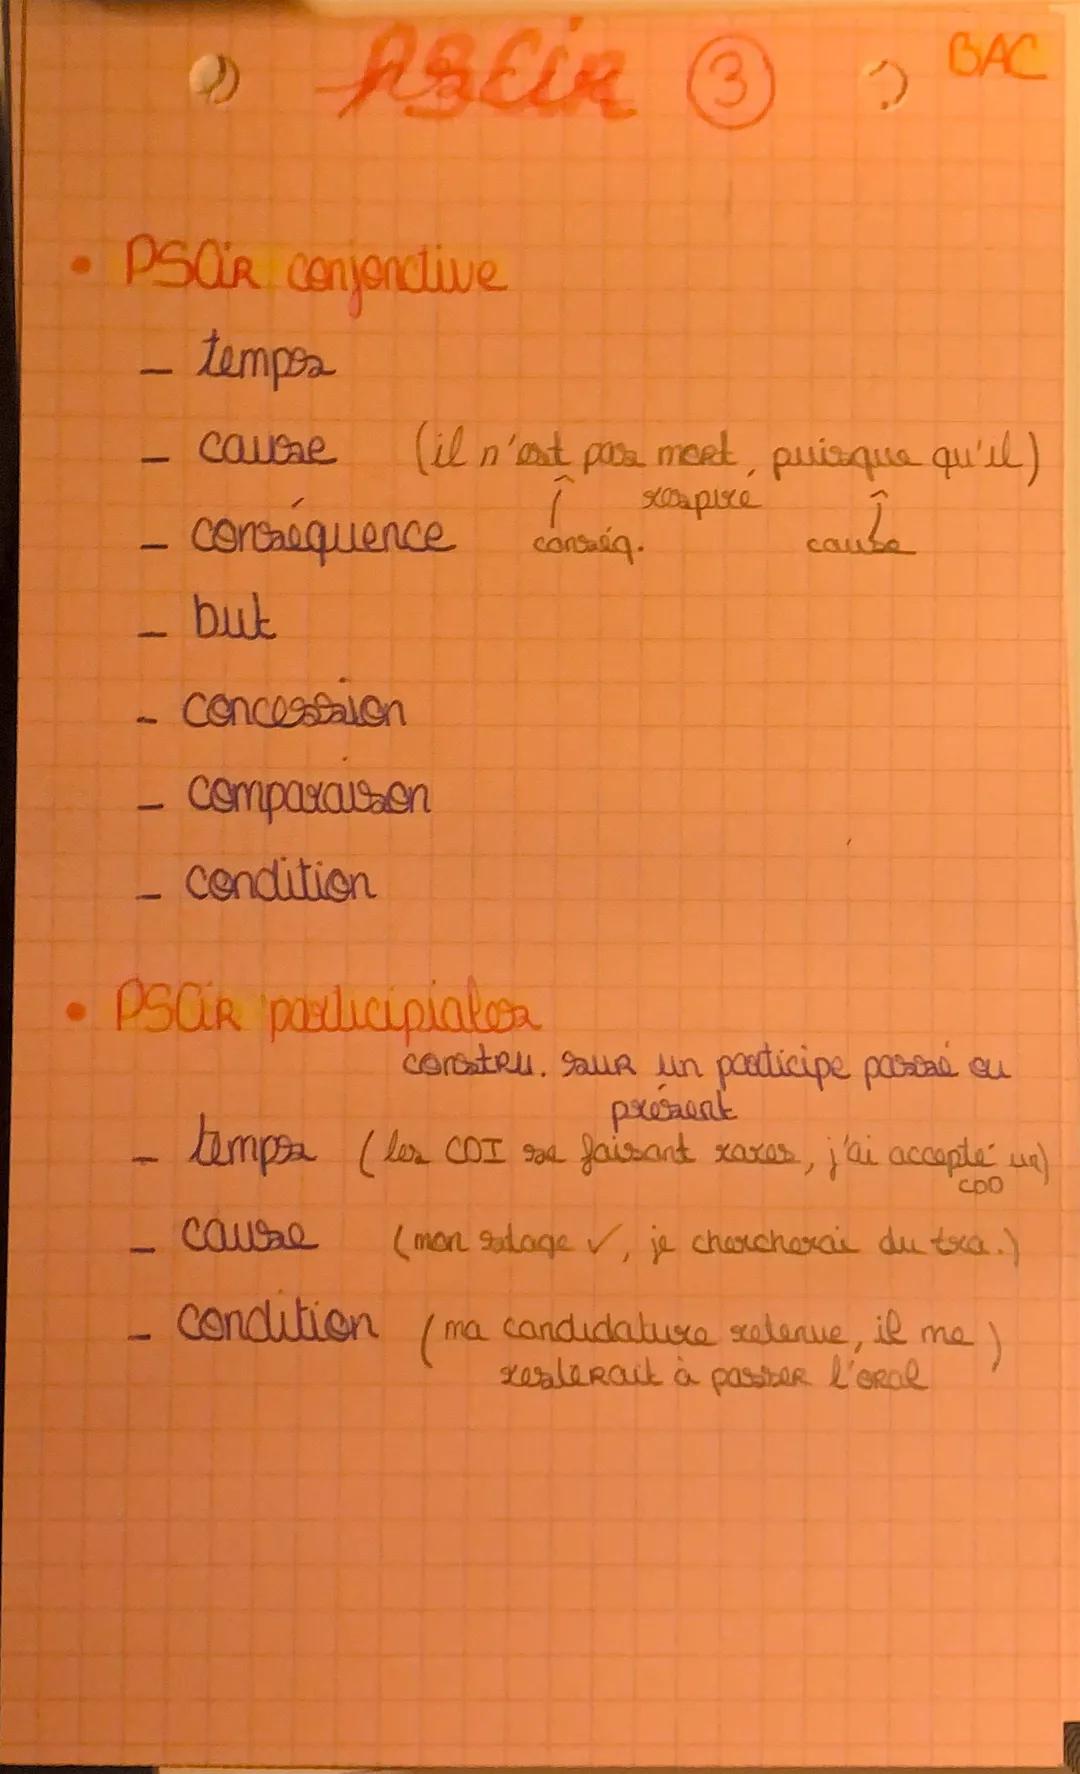 PSCir ③ BAC
• PSCir conjonctive
- temps
- cause (il n'est pas mort, puisque qu'il)
respire
- conséquence conséq. cause
- but
- concession
- comparaison
- condition
• PSCir participiales
constru. sur un participe passé ou
présent
- temps (les CDI se faisant rares, j'ai accepté un)
CDD
- cause (mon stage ✓, je chercherai du tra.)
- condition (ma candidature retenue, il me)
resterait à passer l'oral